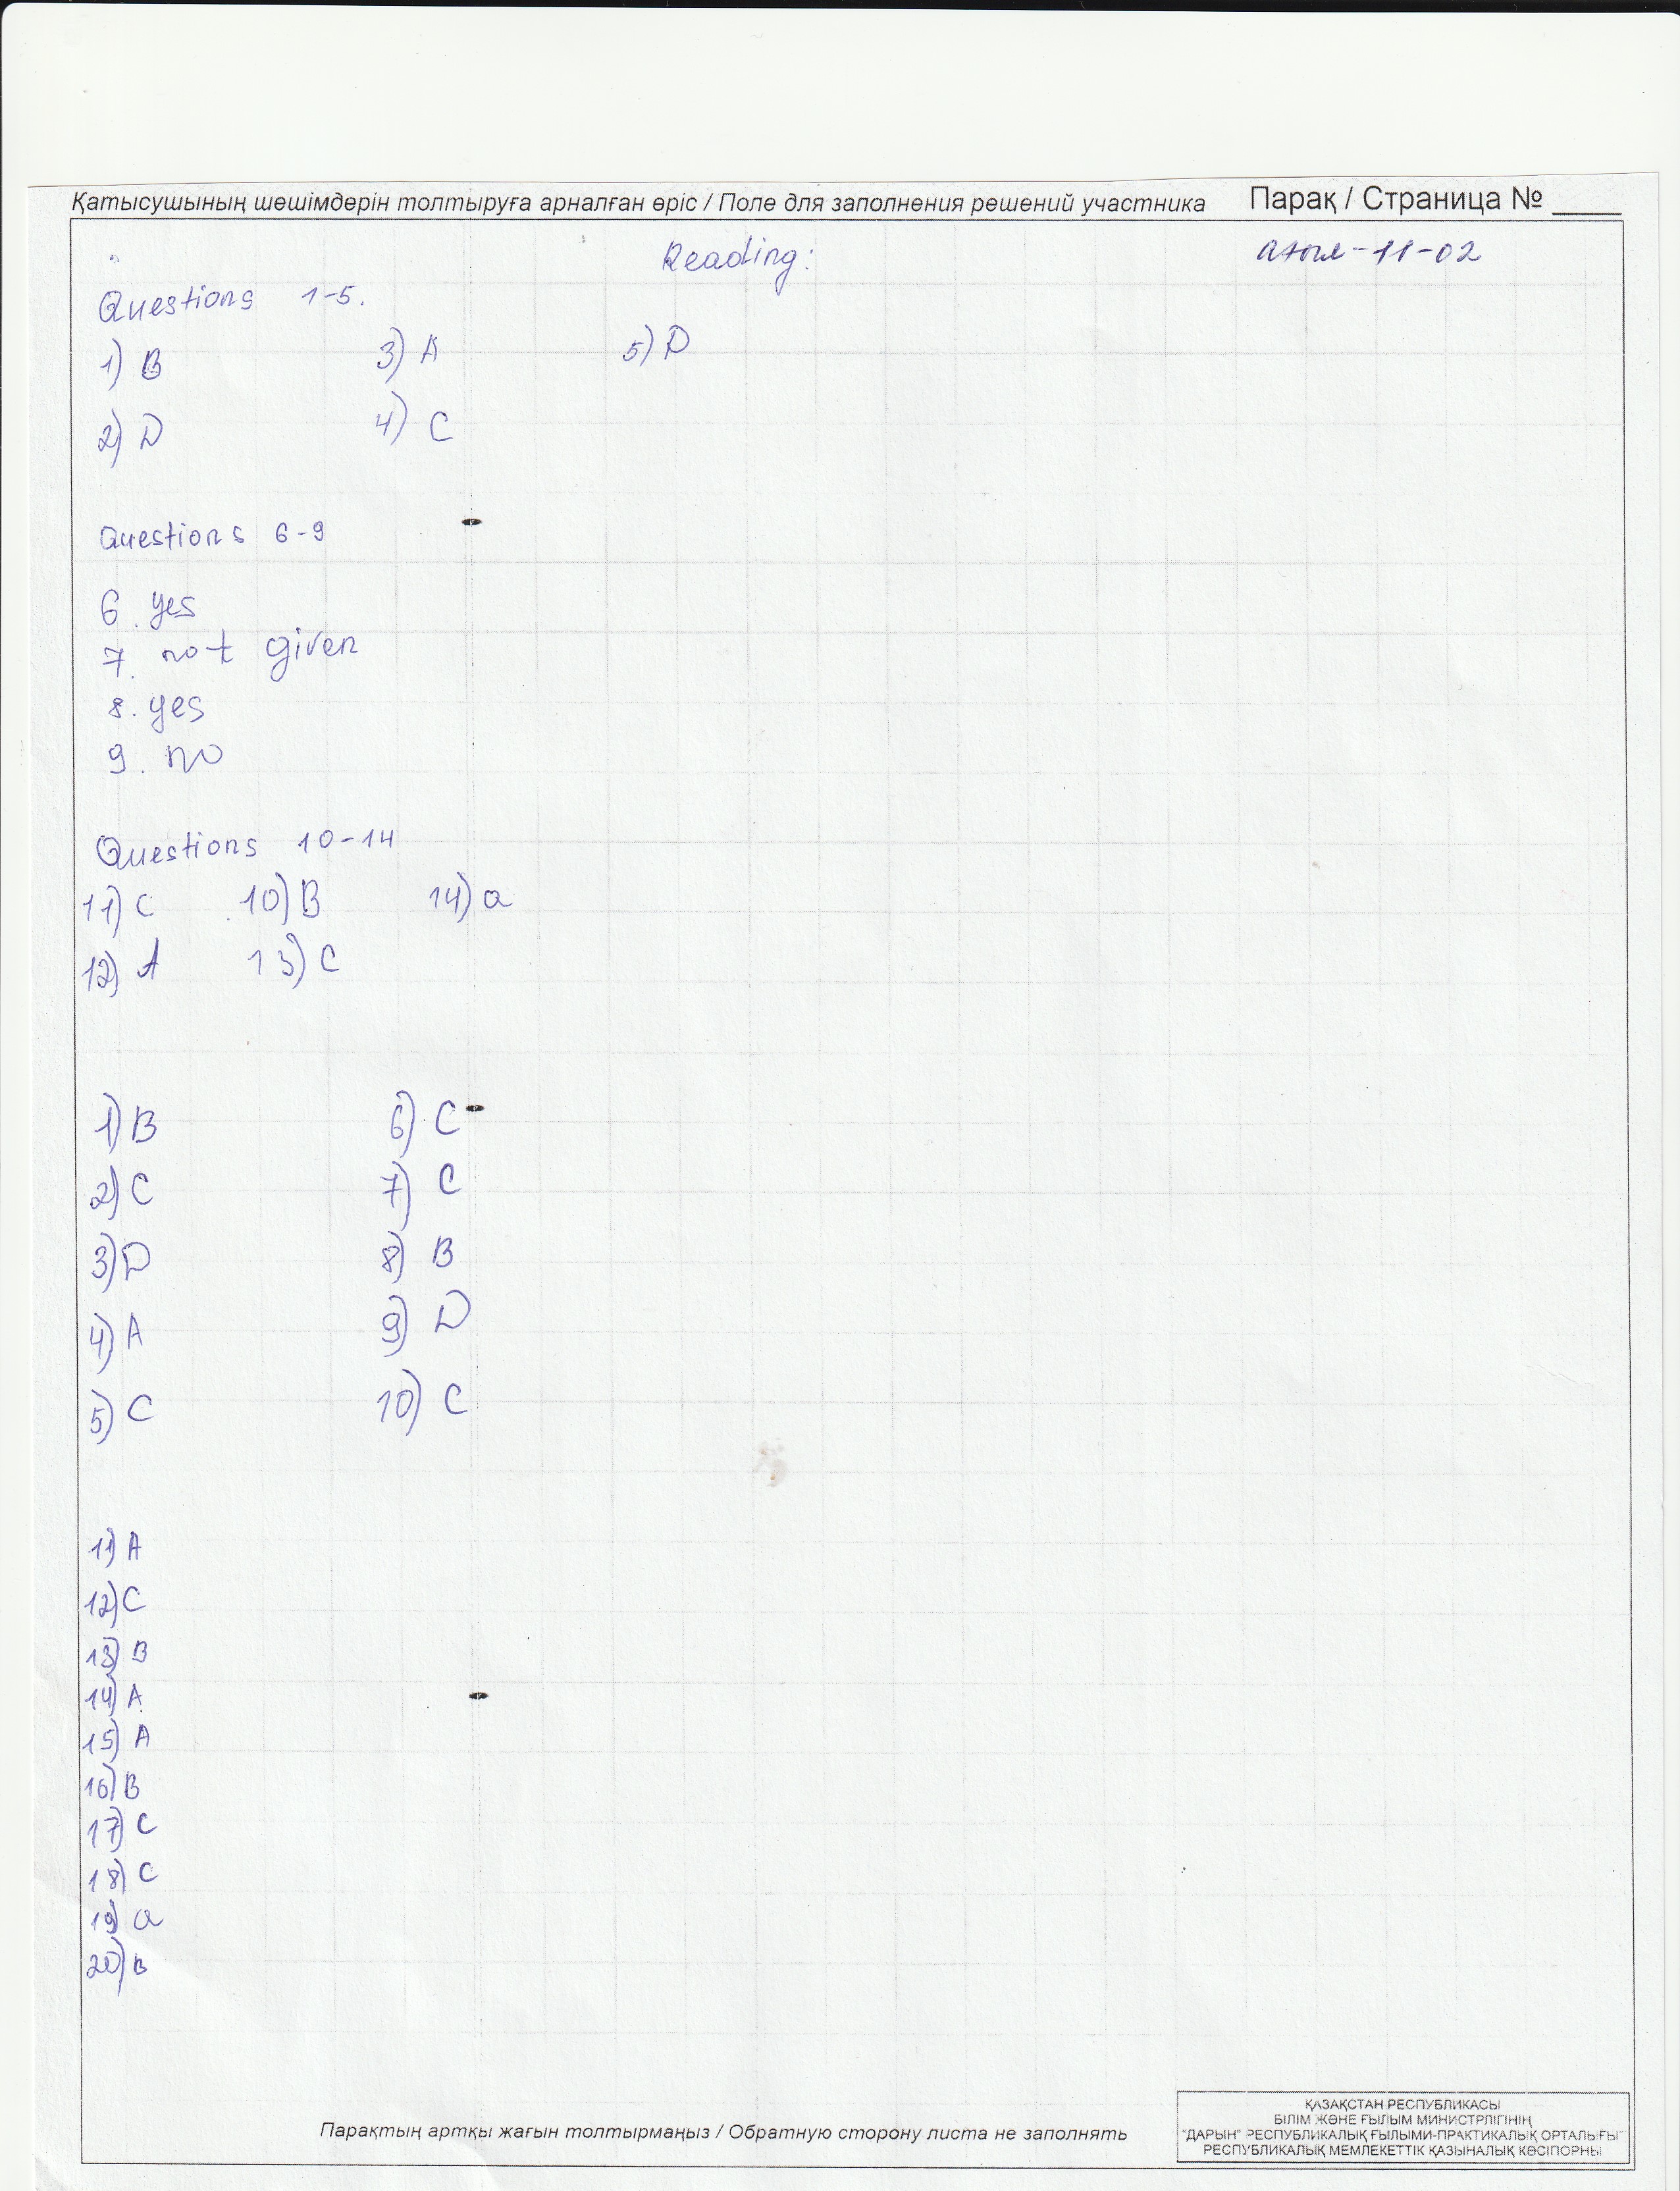 Қатысушының шешімдерін толтыруға арналған өріс / Поле для заполнения решений участника Парақ / Страница № ____
Reading: -11-02
Questions 1-5.
1) B 3) A 5) D
2) D 4) C
Questions 6-9
6. yes
7. not given
8. yes
9. no
Questions 10-14
11) C 10) B 14) a
12) A 13) C
1) B 6) C
2) C 7) C
3) D 8) B
4) A 9) D
5) C 10) C
11) A
12) C
13) B
14) A
15) A
16) B
17) C
18) C
19) a
20) B
Парақтың артқы жағын толтырмаңыз / Обратную сторону листа не заполнять
ҚАЗАҚСТАН РЕСПУБЛИКАСЫ
БІЛІМ ЖӘНЕ ҒЫЛЫМ МИНИСТРЛІГІНІҢ
"ДАРЫН" РЕСПУБЛИКАЛЫҚ ҒЫЛЫМИ-ПРАКТИКАЛЫҚ ОРТАЛЫҒЫ"
РЕСПУБЛИКАЛЫҚ МЕМЛЕКЕТТІК ҚАЗЫНАЛЫҚ КӘСІПОРНЫ